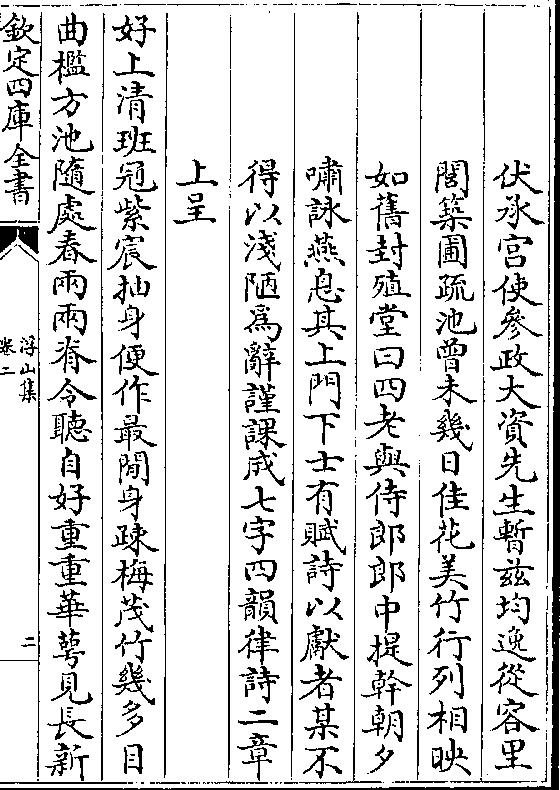 伏承宮使參政大資先生暫兹均逸從容里
閭築圃疏池曾未幾日佳花美竹行列相映
如舊封殖堂曰四老與侍郎郎中提幹朝夕
嘯詠燕息其上門下士有賦詩以獻者某不
得以淺陋為辭謹課成七字四韻律詩二章
上呈
好上清班冠紫宸抽身便作最閒身疎梅茂竹幾多目
曲檻方池隨處春兩兩脊令聽自好重重華萼見長新
欽定四庫全書
浮山集
卷二
二